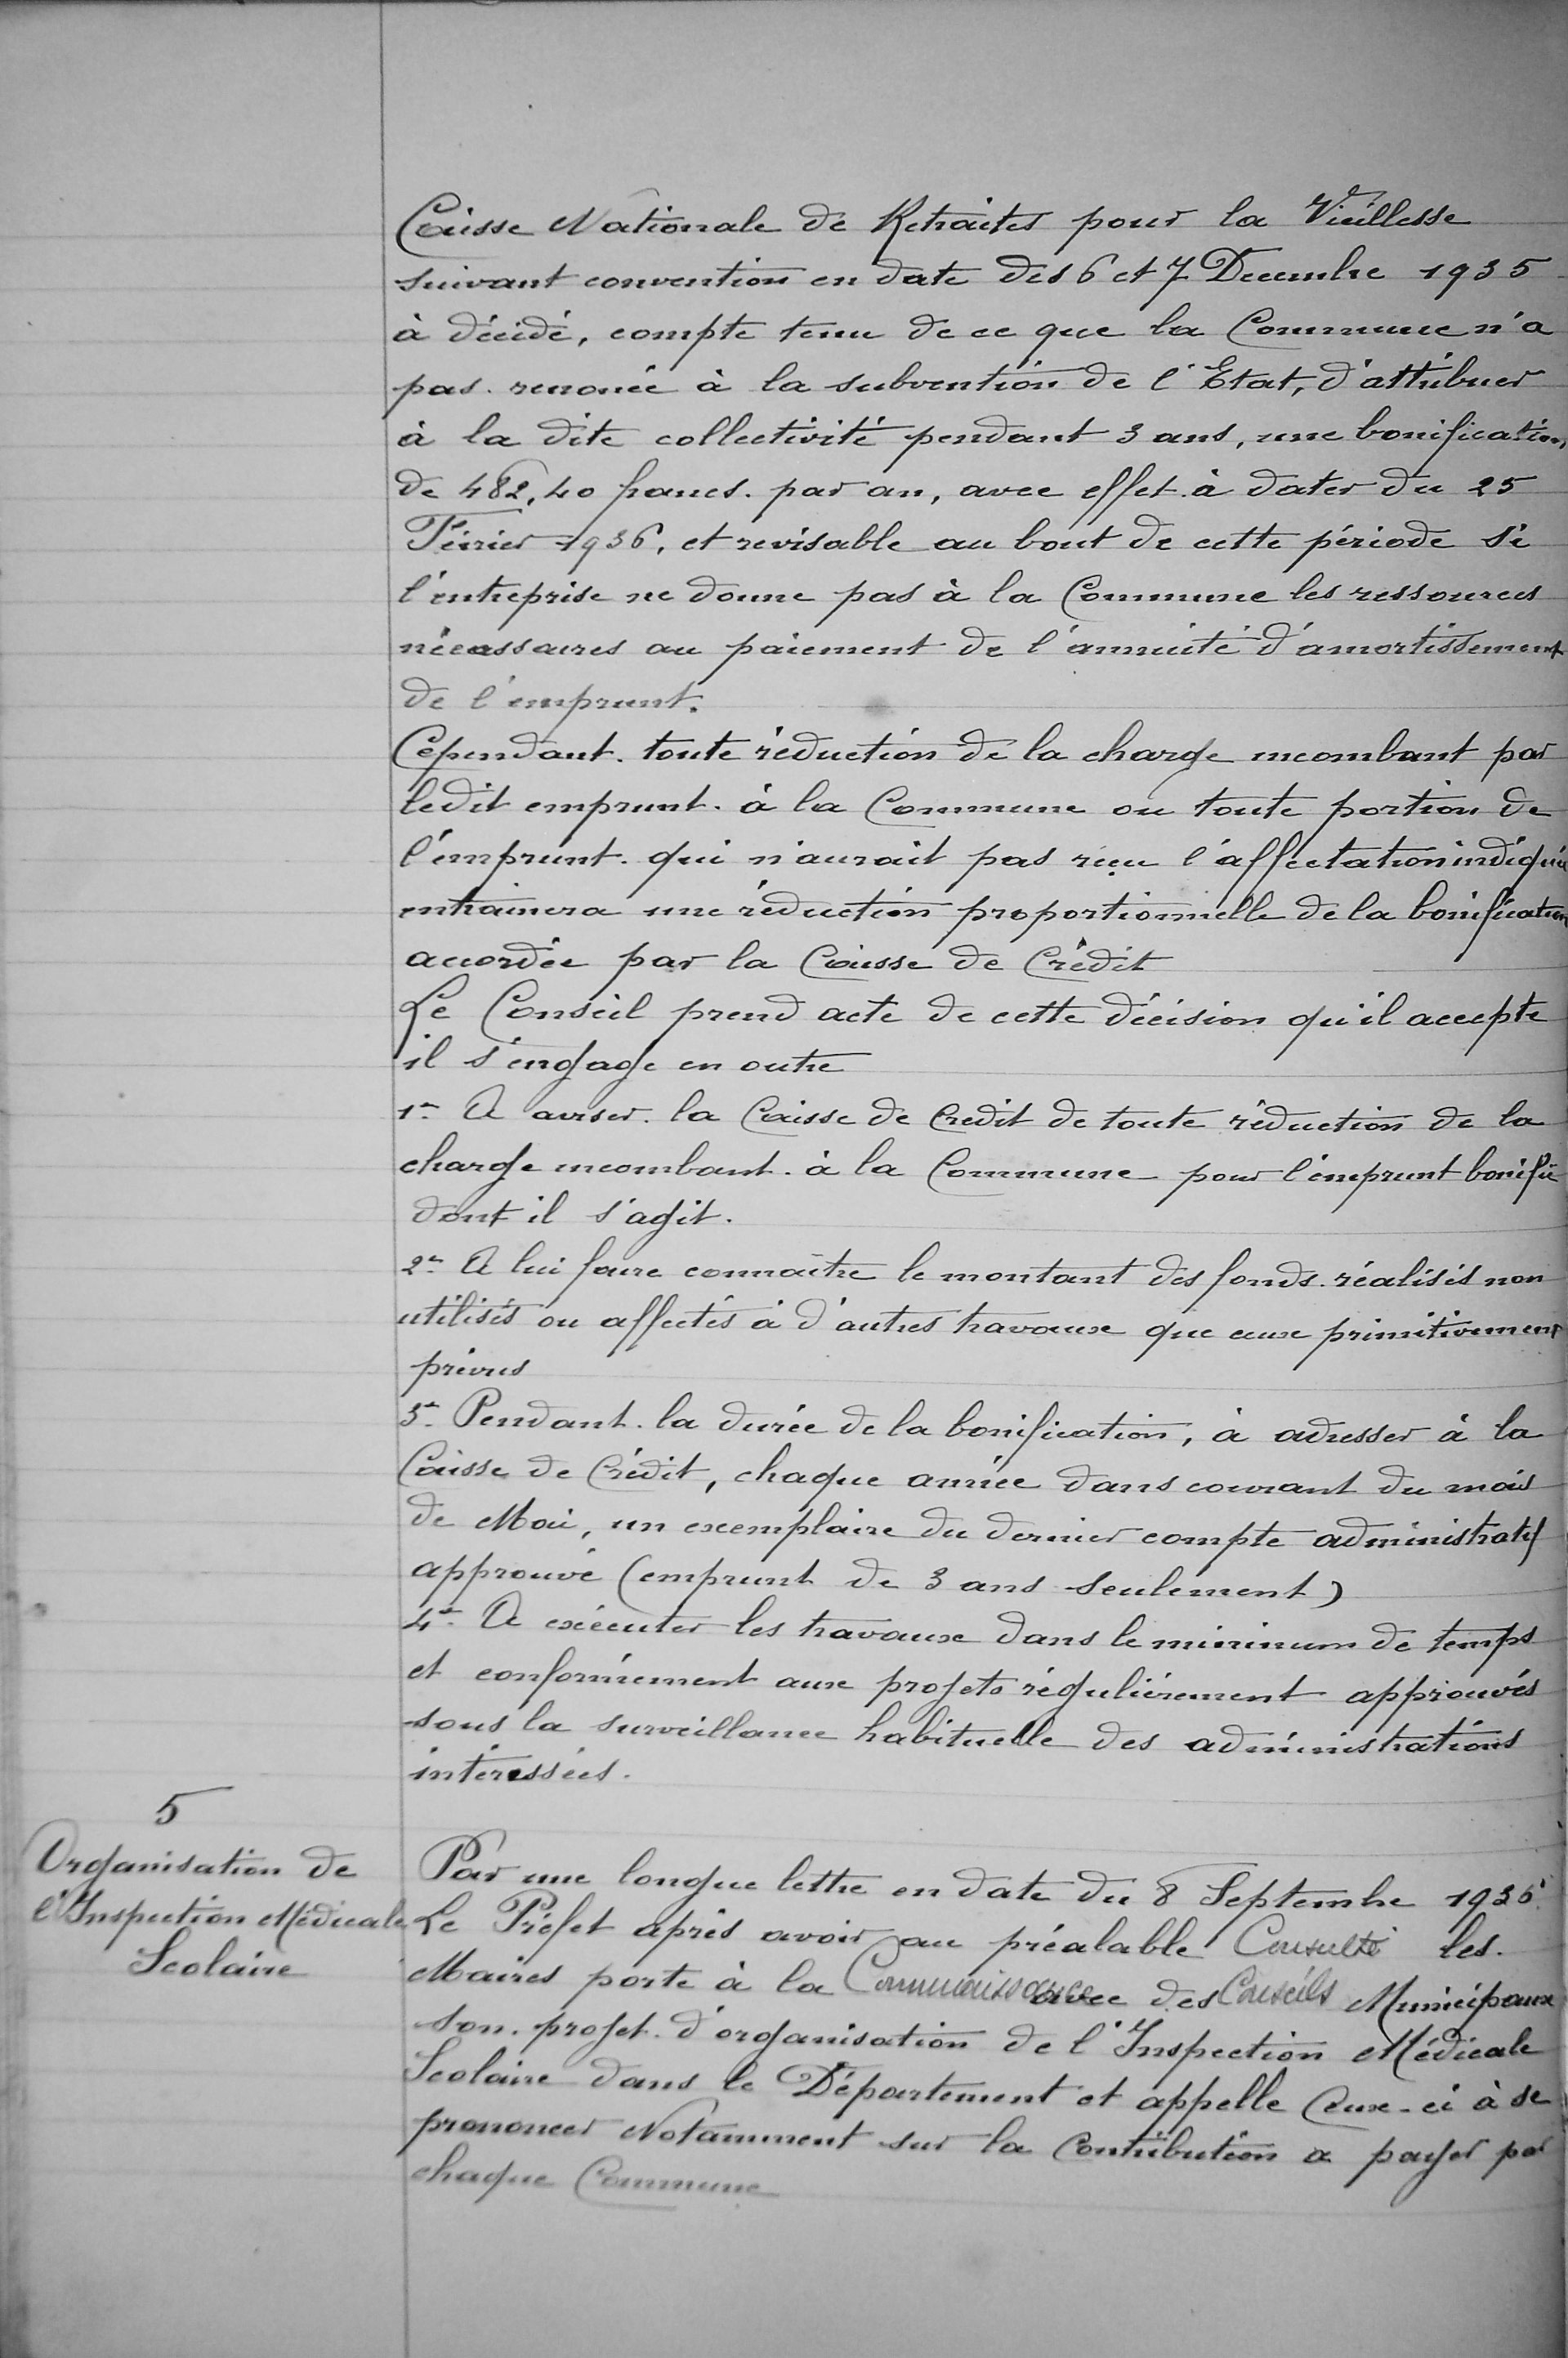 Caisse Nationale de Retraites pour la Vieillesse
suivant convention en date des 6 et 7 Decembre 1935
à décidé, compte tenu de ce que la Commune n'a
pas renoncé à la subvention de l'Etat, d'attribuer
à la dite collectivité pendant 3 ans, une bonification
de 482,40 francs par an, avec effet à dater du 25
Février 1936, et revisable au bout de cette période si
l'entreprise ne donne pas à la Commune les ressources
nécassaires au paiement de l'annuité d'amortissement
de l'emprunt.
Cependant toute réduction de la charge incombant par
ledit emprunt à la Commune ou toute portion de
l'emprunt qui n'aurait pas reçu l'affectation indiquée
entrainera une réduction proportionnelle de la bonification
accordée par la Caisse de Crédit
Le Conseil prend acte de cette décision qu'il accepte
il s'engage en outre
1° A aviser la Caisse de Credit de toute réduction de la
charge incombant à la Commune pour l'emprunt bonifié
dont il s'agit.
2° A lui faire connaître le montant des fonds réalisés non
utilisés ou affectés à d'autres travaux que ceux primitivement
prévus
3° Pendant la durée de la bonification, à adresser à la
Caisse de Crédit, chaque année dans courant du mois
de Mai, un exemplaire du dernier compte administratif
approuvé (emprunt de 3 ans seulement)
4° A exécuter les travaux dans le minimum de temps
et conformément aux projets régulièrement approuvés
sous la surveillance habituelle des administrations
intéressées.
5
Organisation de
l'Inspection Médicale
Scolaire
Par une longue lettre en date du 8 Septembre 1936
Le Préfet après avoir au préalable Consulté les
Maires porte à la Connaissance des Conseils Municipaux
son projet d'organisation de l'Inspection Médicale
Scolaire dans le Département et appelle Ceux-ci à se
prononcer Notamment sur la Contribution a payer par
chaque Commune